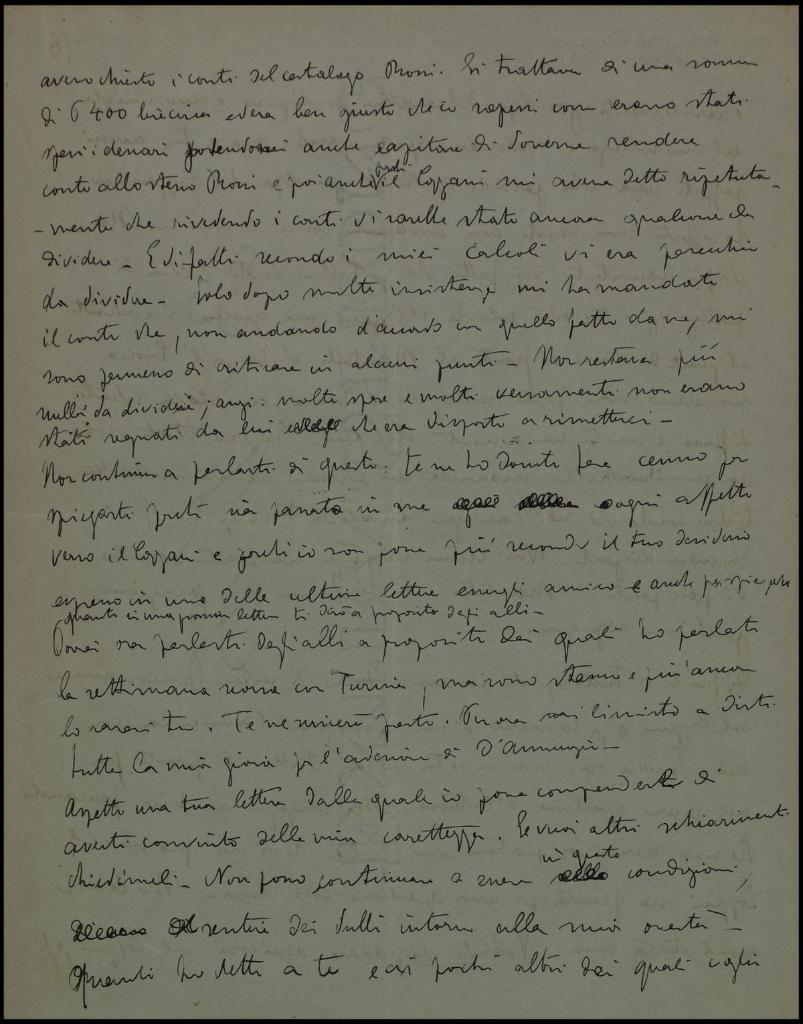 avevo chiesto i conti del catalago Rossi. Si trattava di una somma
di 6400 lire circa ed era ben giusto che io sapessi come erano stati
spesi i denari potendomi anche capitare di doverne rendere
conto allo stesso Rossi e poi anche perché il Cozzani mi aveva detto ripetuta-
-mente che rivedendo i conti vi sarebbe stato ancora qualcosa da
dividere - E difatti secondo i miei calcoli vi era parecchio
da dividere - Solo dopo molte insistenze mi ha mandato
il conto che, non andando d'accordo con quello fatto da me, mi
sono permesso di criticare in alcuni punti - Non restava più
nulla da dividere; anzi: molte spese e molti versamenti non erano
stati segnati da lui che era disposto a rimetterci -
Non continuo a parlarti di questo: te ne ho dovuto fare cenno per
spiegarti perché sia passato in me ogni affetto
verso il Cozzani e perché io non posso più secondo il tuo desiderio
espresso in una delle ultime lettere essergli amico e anche per spiegarti
quanto in una prossima lettera ti dirò a proposito degli alli -
Dovrei ora parlarti degli alli a proposito dei quali ho parlato
la settimana scorsa con Turina, ma sono stanco e più ancora
lo sarai tu. Te ne scriverò presto. Per ora mi limito a dirti
tutta la mia gioia per l'adesione di D'Annunzio -
Aspetto una tua lettera dalla quale io possa comprendere di
averti convinto della mia correttezza. Se vuoi altri schiarimenti
chiedimeli - Non posso continuare a essere in queste condizioni,
sentire dei dubbi intorno alla mia onestà -
Quanto ho detto a te e ai pochi altri dei quali voglio